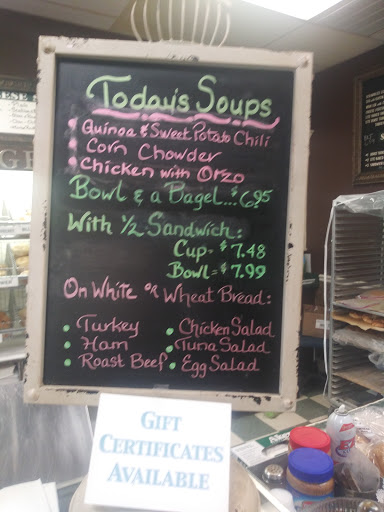 Today's Soups
• Quinoa & Sweet Potato Chili
• Corn Chowder
• Chicken with Orzo
Bowl & a Bagel...$6.95
With ½ Sandwich:
Cup = $7.48
Bowl = $7.99
On White or Wheat Bread:
• Turkey
• Ham
• Roast Beef
• Chicken Salad
• Tuna Salad
• Egg Salad
Gift
Certificates
Available